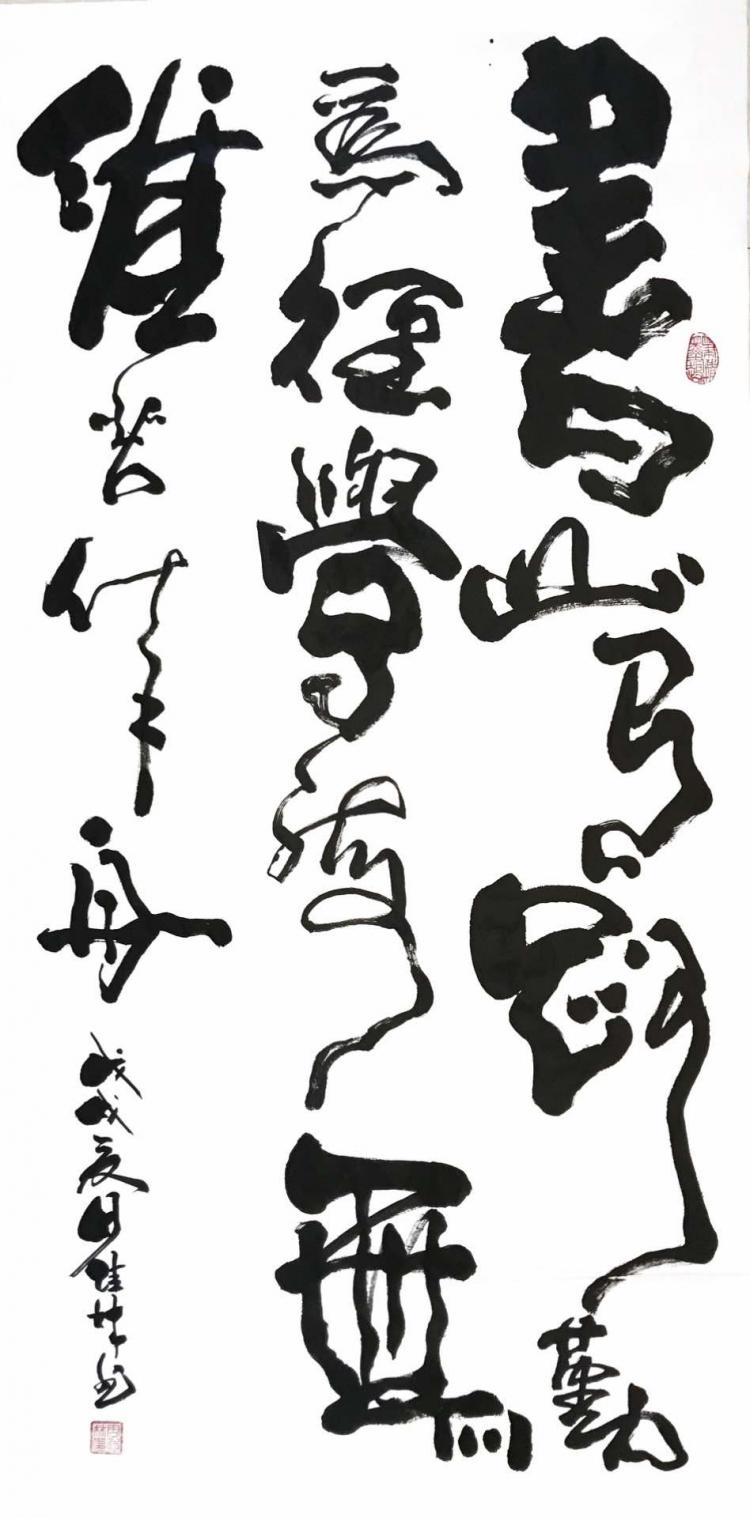 書山有路勤
為徑學海無
涯苦作舟
戊戌夏月